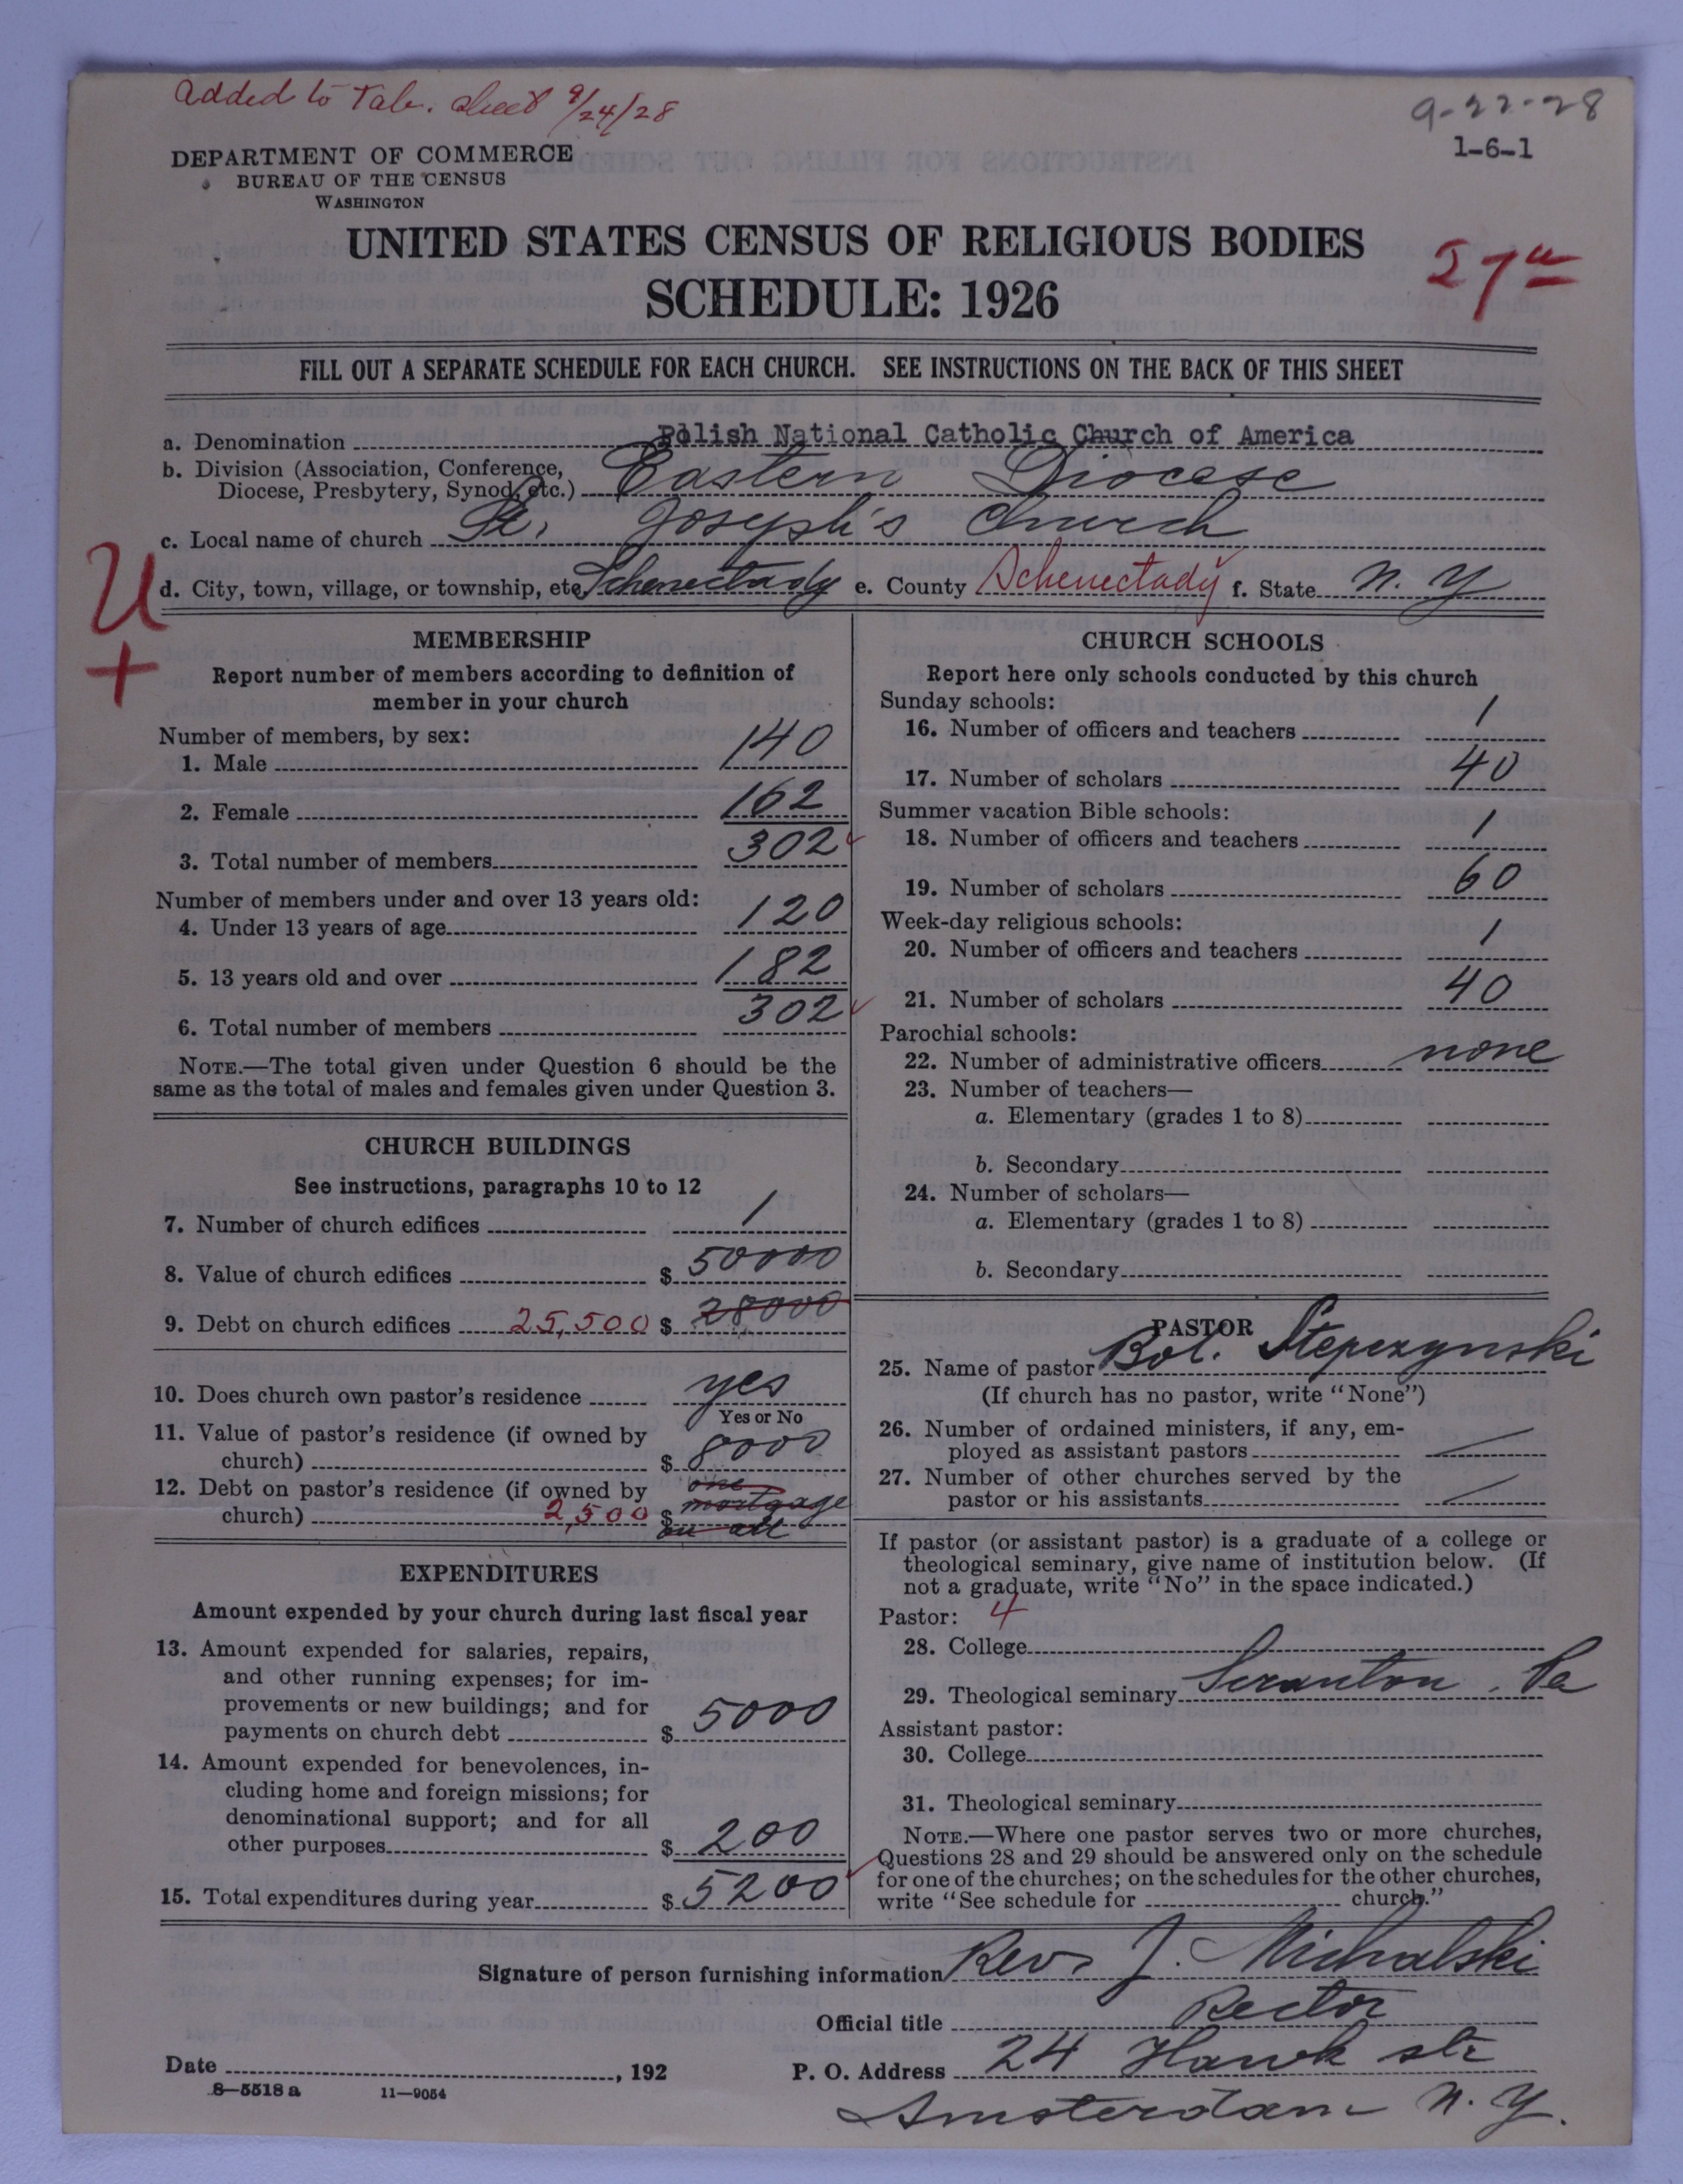 added to Tab. sheet 9/24/28
9-22-28
1-6-1
DEPARTMENT OF COMMERCE
BUREAU OF THE CENSUS
WASHINGTON
UNITED STATES CENSUS OF RELIGIOUS BODIES
SCHEDULE: 1926
27a
FILL OUT A SEPARATE SCHEDULE FOR EACH CHURCH. SEE INSTRUCTIONS ON THE BACK OF THIS SHEET
a. Denomination Polish National Catholic Church of America
b. Division (Association, Conference,
Diocese, Presbytery, Synod, etc.) Eastern Diocese
c. Local name of church St. Joseph's Church
d. City, town, village, or township, etc. Schenectady e. County Schenectady f. State N. Y
U
+
MEMBERSHIP
Report number of members according to definition of
member in your church
Number of members, by sex:
1. Male 140
2. Female 162
3. Total number of members 302
Number of members under and over 13 years old:
4. Under 13 years of age 120
5. 13 years old and over 182
6. Total number of members 302
NOTE.—The total given under Question 6 should be the
same as the total of males and females given under Question 3.
CHURCH BUILDINGS
See instructions, paragraphs 10 to 12
7. Number of church edifices 1
8. Value of church edifices $ 50000
9. Debt on church edifices 25,500 $ 28000
10. Does church own pastor's residence yes
Yes or No
11. Value of pastor's residence (if owned by
church) $ 8000
12. Debt on pastor's residence (if owned by one
church) 2,500 $ mortgage
on all
EXPENDITURES
Amount expended by your church during last fiscal year
13. Amount expended for salaries, repairs,
and other running expenses; for im-
provements or new buildings; and for
payments on church debt $ 5000
14. Amount expended for benevolences, in-
cluding home and foreign missions; for
denominational support; and for all
other purposes $ 200
15. Total expenditures during year $ 5200
CHURCH SCHOOLS
Report here only schools conducted by this church
Sunday schools:
16. Number of officers and teachers 1
17. Number of scholars 40
Summer vacation Bible schools:
18. Number of officers and teachers 1
19. Number of scholars 60
Week-day religious schools:
20. Number of officers and teachers 1
21. Number of scholars 40
Parochial schools:
22. Number of administrative officers none
23. Number of teachers—
a. Elementary (grades 1 to 8)
b. Secondary
24. Number of scholars—
a. Elementary (grades 1 to 8)
b. Secondary
PASTOR
25. Name of pastor Bol. Stepczynski
(If church has no pastor, write "None")
26. Number of ordained ministers, if any, em-
ployed as assistant pastors
27. Number of other churches served by the
pastor or his assistants
If pastor (or assistant pastor) is a graduate of a college or
theological seminary, give name of institution below. (If
not a graduate, write "No" in the space indicated.)
Pastor: 4
28. College
29. Theological seminary Scranton, Pa
Assistant pastor:
30. College
31. Theological seminary
NOTE.—Where one pastor serves two or more churches,
Questions 28 and 29 should be answered only on the schedule
for one of the churches; on the schedules for the other churches,
write "See schedule for church."
Signature of person furnishing information Rev. J. Michalski
Official title Rector
Date , 192 P. O. Address 24 Hawk str
8—5518 a 11—9054
Amsterdam N. Y.